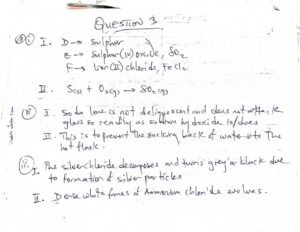 QUESTION 3
a) i) I. D → Sulphur
E → Sulphur(IV) oxide, SO₂
F → Iron(II) chloride, FeCl₂
II. S(s) + O₂(g) → SO₂(g)
ii) I. Soda lime is not deliquescent and does not attack
glass so readily as sodium hydroxide is/does
II. This is to prevent the sucking back of water into the
hot flask.
iii. I. The silver chloride decomposes and turns grey or black due
to formation of silver particles
II. Dense white fumes of Ammonium chloride evolves.